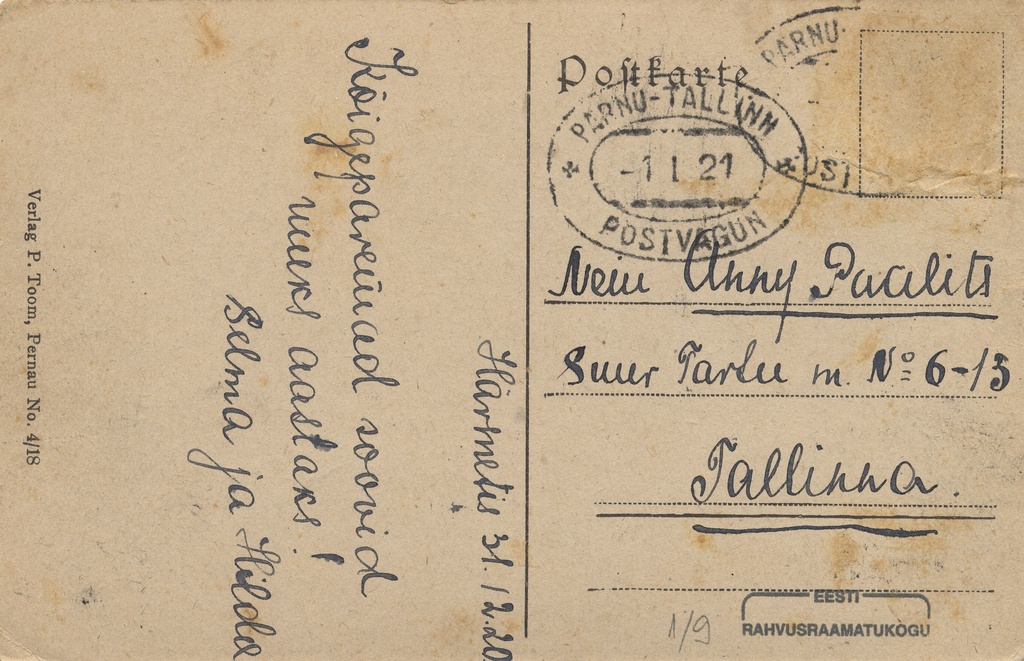 Postkarte
PARNU-TALLINN
-1 I 21
POSTVAGUN
PARNU-
Neiu Anny Paalits
Suur Tartu m. No 6-13
Tallinna.
Härmetis 31. 12. 20
Kõigeparemad soovid
uueks aastaks!
Selma ja Hilda
Verlag P. Toom, Pernau No. 4/18
1/9
EESTI
RAHVUSRAAMATUKOGU